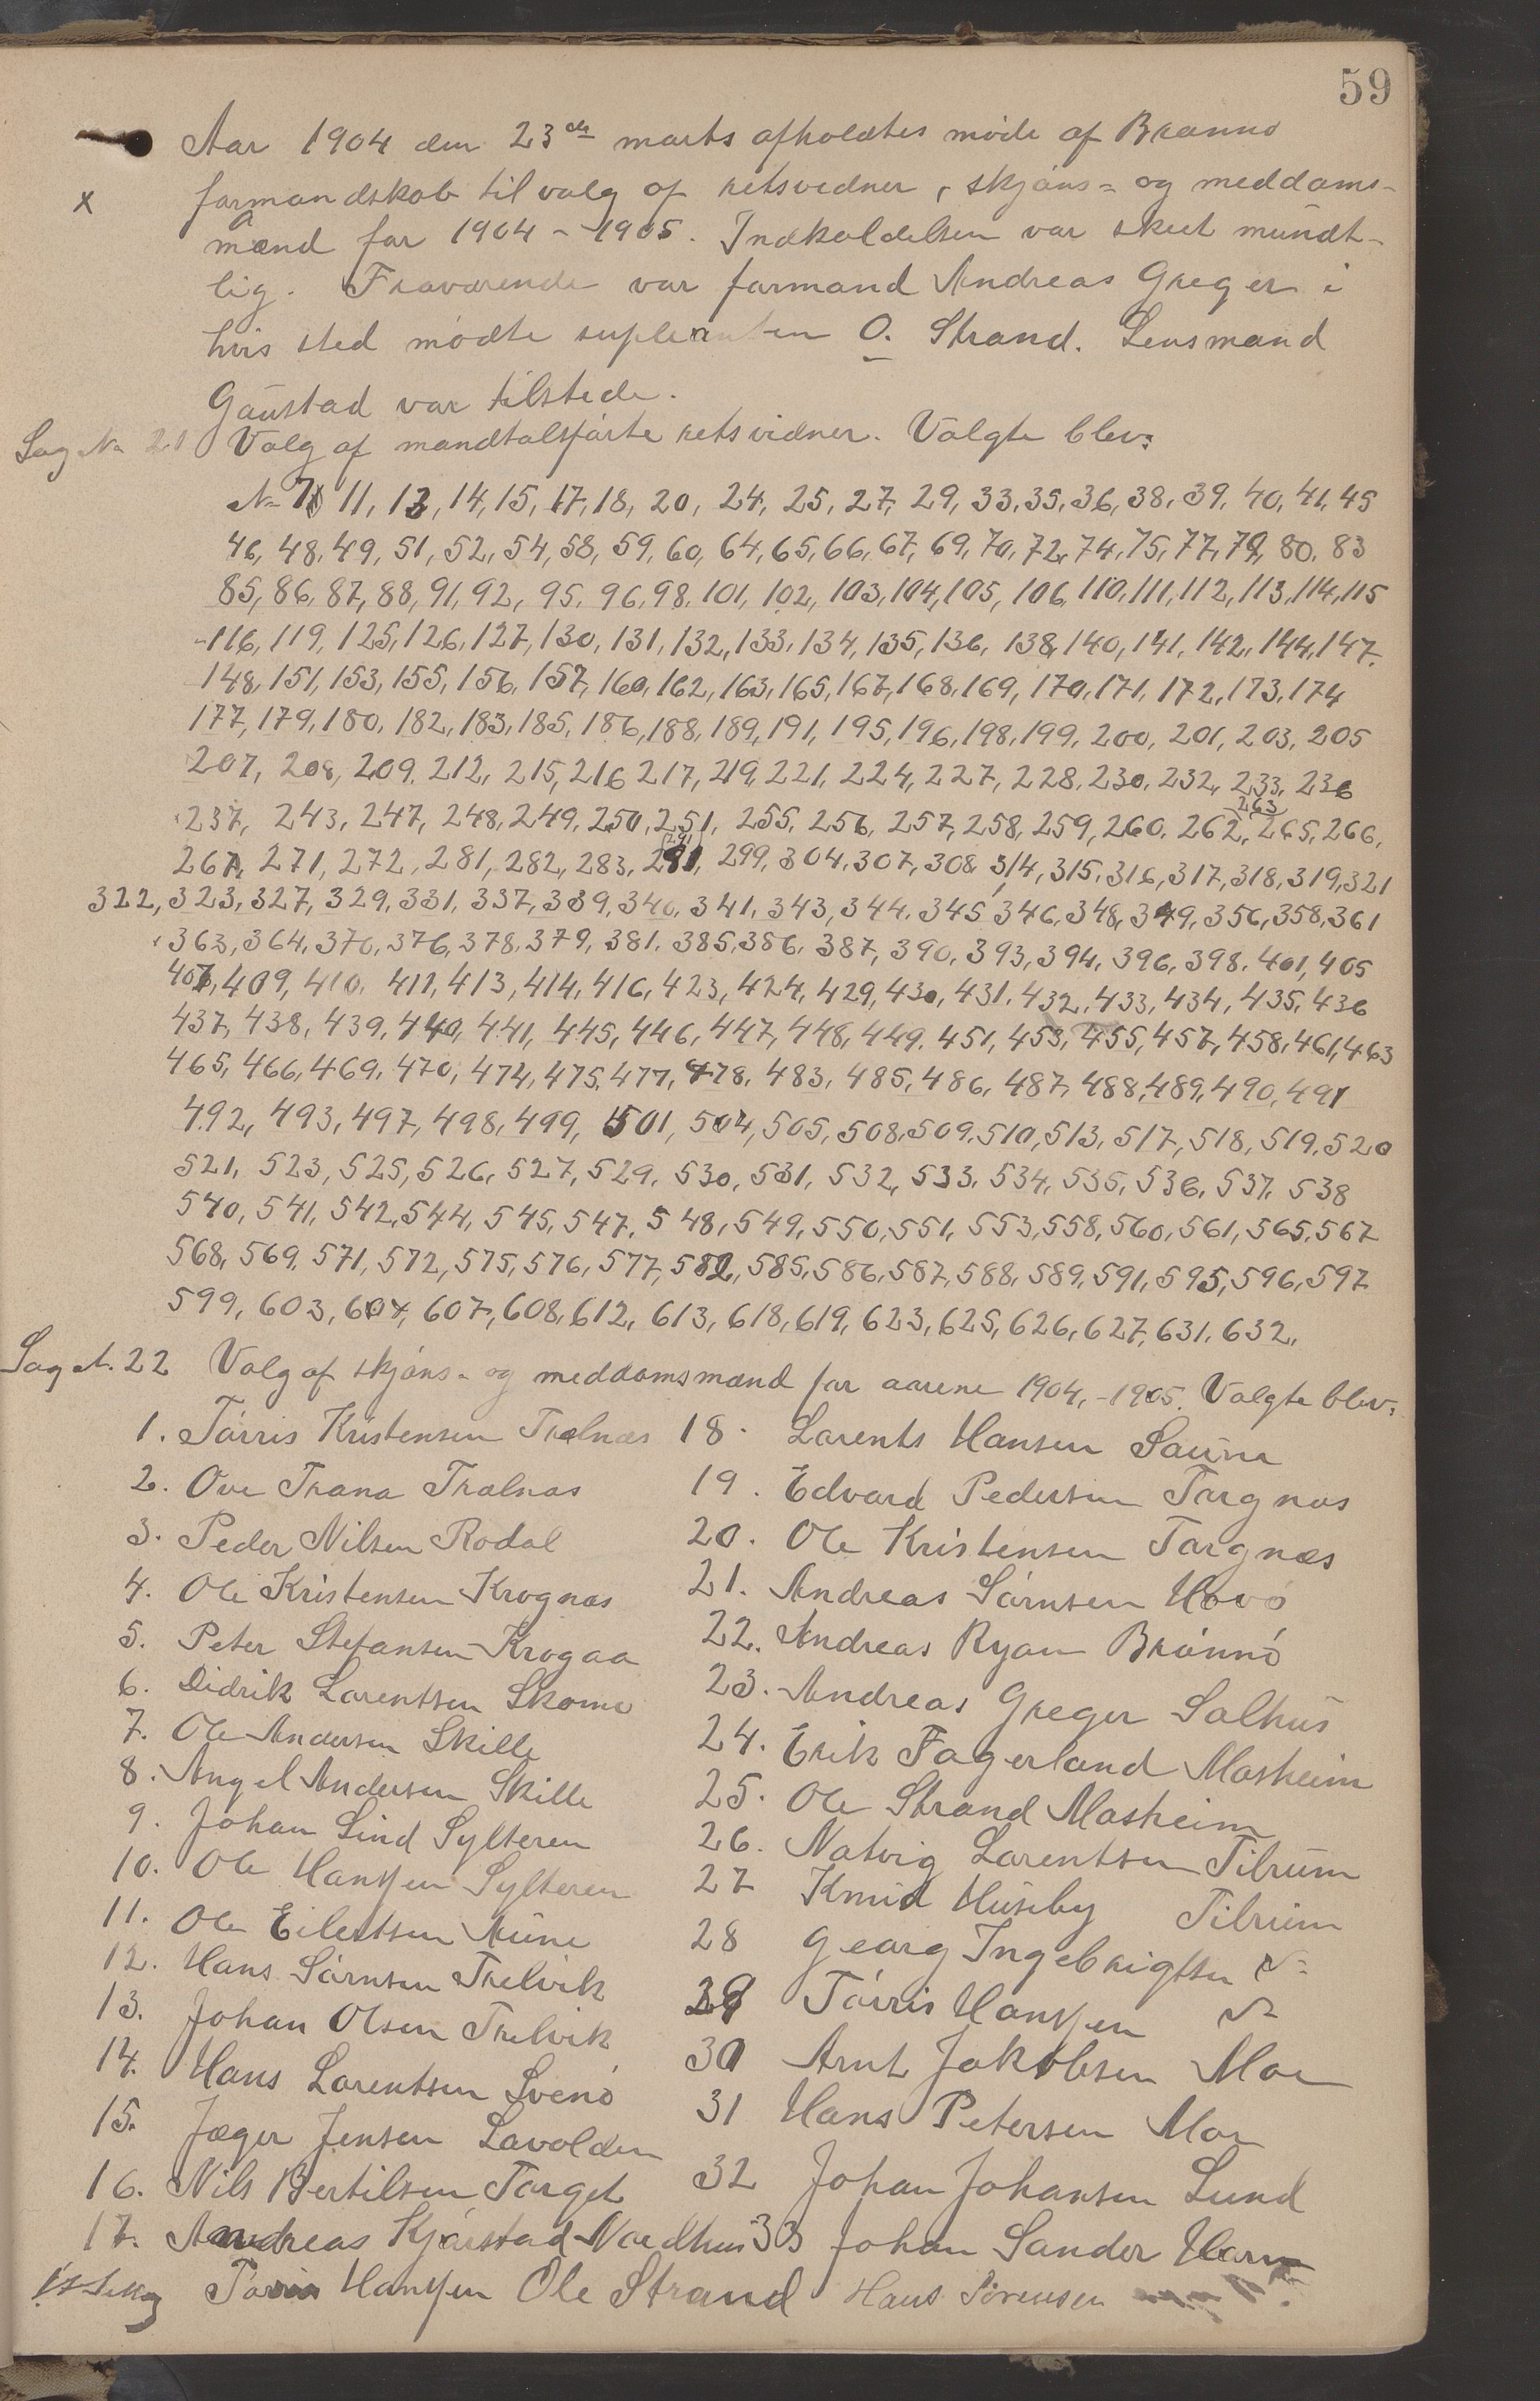 59
Aar 1904 den 23de marts afholdtes møde af Brønnø
x formandskab til valg af retsvidner, skjøns- og meddoms-
mænd for 1904 - 1905. Indkaldelsen var skeet mundt-
lig. Fraværende var formand Andreas Greger i
hvis sted mødte supleanten O. Strand. Lensmand
Gaustad var tilstede.
Sag No 21 Valg af mandtalsførte retsvidner. Valgte blev:
No 11, 13, 14, 15, 17, 18, 20, 24, 25, 27, 29, 33, 35, 36, 38, 39, 40, 41, 45
46, 48, 49, 51, 52, 54, 58, 59, 60, 64, 65, 66, 67, 69, 70, 72, 74, 75, 77, 79, 80, 83
85, 86, 87, 88, 91, 92, 95, 96, 98, 101, 102, 103, 104, 105, 106, 110, 111, 112, 113, 114, 115
116, 119, 125, 126, 127, 130, 131, 132, 133, 134, 135, 136, 138, 140, 141, 142, 144, 147.
148, 151, 153, 155, 156, 157, 160, 162, 163, 165, 167, 168, 169, 170, 171, 172, 173, 174
177, 179, 180, 182, 183, 185, 186, 188, 189, 191, 195, 196, 198, 199, 200, 201, 203, 205
207, 208, 209, 212, 215, 216 217, 219, 221, 224, 227, 228, 230, 232, 233, 236
237, 243, 247, 248, 249, 250, 251, 255, 256, 257, 258, 259, 260, 262, 263 265, 266,
267, 271, 272, 281, 282, 283, 291, 299, 304, 307, 308, 314, 315, 316, 317, 318, 319, 321
322, 323, 327, 329, 331, 337, 339, 340, 341, 343, 344, 345, 346, 348, 349, 356, 358, 361
363, 364, 370, 376, 378, 379, 381, 385, 386, 387, 390, 393, 394, 396, 398, 401, 405
407, 409, 410, 411, 413, 414, 416, 423, 424, 429, 430, 431, 432, 433, 434, 435, 436
437, 438, 439, 440, 441, 445, 446, 447, 448, 449, 451, 453, 455, 457, 458, 461, 463
465, 466, 469, 470, 474, 475, 477, 478, 483, 485, 486, 487, 488, 489, 490, 491
492, 493, 497, 498, 499, 501, 504, 505, 508, 509, 510, 513, 517, 518, 519, 520
521, 523, 525, 526, 527, 529, 530, 531, 532, 533, 534, 535, 536, 537, 538
540, 541, 542, 544, 545, 547, 548, 549, 550, 551, 553, 558, 560, 561, 565, 567
568, 569, 571, 572, 575, 576, 577, 582, 585, 586, 587, 588, 589, 591, 595, 596, 597
599, 603, 604, 607, 608, 612, 613, 618, 619, 623, 625, 626, 627, 631, 632.
Sag N. 22 Valg af skjøns- og meddomsmænd for aarene 1904, -1905. Valgte blev:
1. Tørris Kristensen Trælnæs
2. Ove Trana Trælnæs
3. Peder Nilsen Rodal
4. Ole Kristensen Krognæs
5. Peter Stefansen Krogaa
6. Didrik Larentsen Skomo
7. Ole Andersen Skille
8. Angel Andersen Skille
9. Johan Lind Sylteren
10. Ole Hanssen Sylteren
11. Ole Eilertsen Aune
12. Hans Sørnsen Trelvik
13. Johan Olsen Trelvik
14. Hans Larentsen Svenø
15. Jæger Jensen Lavolden
16. Nils Bertilsen Torget
17. Andreas Kjørstad Nordhus
18. Larents Hansen Sauren
19. Edvard Pedersen Torgnæs
20. Ole Kristensen Torgnæs
21. Andreas Sørnsen Hovø
22. Andreas Ryan Brønnø
23. Andreas Greger Salhus
24. Erik Fagerland Mosheim
25. Ole Strand Mosheim
26. Natvig Larentsen Tilrum
27 Knud Huseby Tilrum
28 Georg Ingebrigtsen
29 Tørris Hanssen
30 Arnt Jakobsen Moe
31 Hans Petersen Moe
32 Johan Johansen Lund
33 Johan Sander Horn
Tørris Hanssen Ole Strand Hans Sørensen